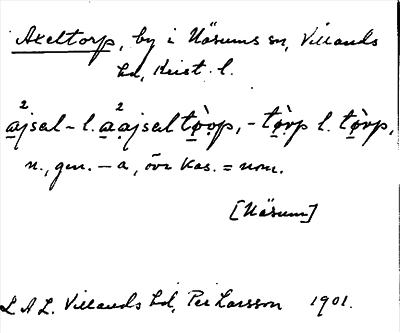 Axeltorp, by i Näsums sn, Villands
hd, Krist. l.
a̱²jsal - l. a̱²ạjsaltò̱op, - tò̱rp l. tò̱rp,
n., gen. - a, övr kas. = nom.
[Näsum]
L A L. Villands hd, Per Larsson 1901.